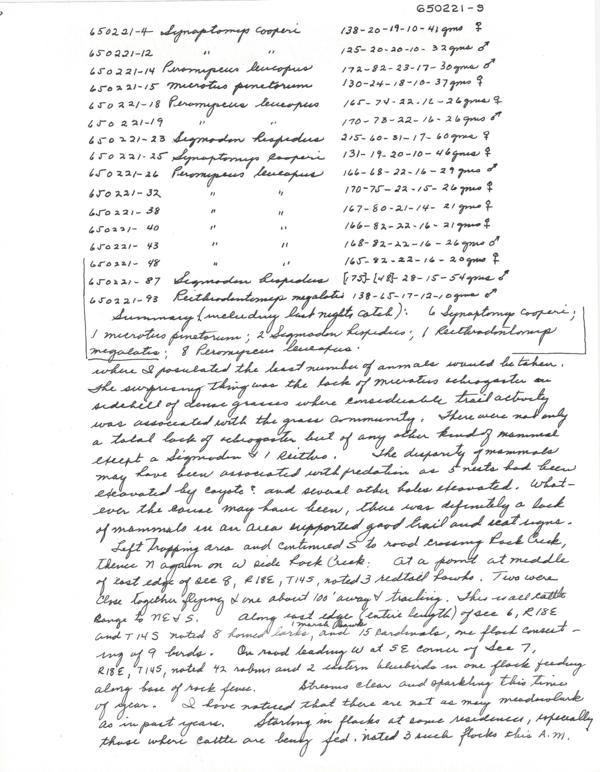 650221-9
650221-4 Synaptomys cooperi 138-20-19-10-41 gms ♀
650221-12 " " 125-20-20-10-32 gms ♂
650221-14 Peromyscus leucopus 172-82-23-17-30 gms ♂
650221-15 Microtus pinetorum 130-24-18-10-37 gms ♀
650221-18 Peromyscus leucopus 165-74-22-16-26 gms ♀
650221-19 " " 170-73-22-16-26 gms ♂
650221-23 Sigmodon hispidus 215-60-31-17-60 gms ♀
650221-25 Synaptomys cooperi 131-19-20-10-46 gms ♀
650221-26 Peromyscus leucopus 166-68-22-16-29 gms ♂
650221-32 " " 170-75-22-15-26 gms ♀
650221-38 " " 167-80-21-14-21 gms ♀
650221-40 " " 166-82-22-16-21 gms ♀
650221-43 " " 168-82-22-16-26 gms ♂
650221-48 " " 165-82-22-16-20 gms ♀
650221-87 Sigmodon hispidus [175]-[48]-28-15-54 gms ♂
650221-93 Reithrodontomys megalotis 138-65-17-12-10 gms ♂
Summary (including last nights catch): 6 Synaptomys cooperi;
1 microtus pinetorum; 2 Sigmodon hispidus; 1 Reithrodontomys
megalotis; 8 Peromyscus leucopus.
where I postulated the least number of animals would be taken.
The surprising thing was the lack of microtus ochrogaster on
sidehill of dense grasses where considerable trail activity
was associated with the grass community. There were not only
a total lack of ochrogaster but of any other kind of mammal
except a Sigmodon & 1 Reithro. The disparity of mammals
may have been associated with predation as 5 nests had been
excavated by coyote? and several other holes excavated. What-
ever the cause may have been, there was definitely a lack
of mammals in an area supported good trail and scat signs.
Left trapping area and continued S to road crossing Rock Creek,
thence N again on W side Rock Creek. At a point at middle
of east edge of sec 8, R18E, T14S, noted 3 redtail hawks. Two were
close together flying & one about 100' away & trailing. This is all cattle
range to NE & S. Along east edge (entire length) of sec 6, R18E
and T14S noted 8 horned larks, 1 marsh hawk and 15 cardinals, one flock consist-
ing of 9 birds. On road leading W at SE corner of Sec 7,
R18E, T14S, noted 42 robins and 2 eastern bluebirds in one flock feeding
along base of rock fence. Streams clear and sparkling this time
of year. I have noticed that there are not as many meadowlark
as in past years. Starling in flocks at some residences, especially
those where cattle are being fed. Noted 3 such flocks this A.M.